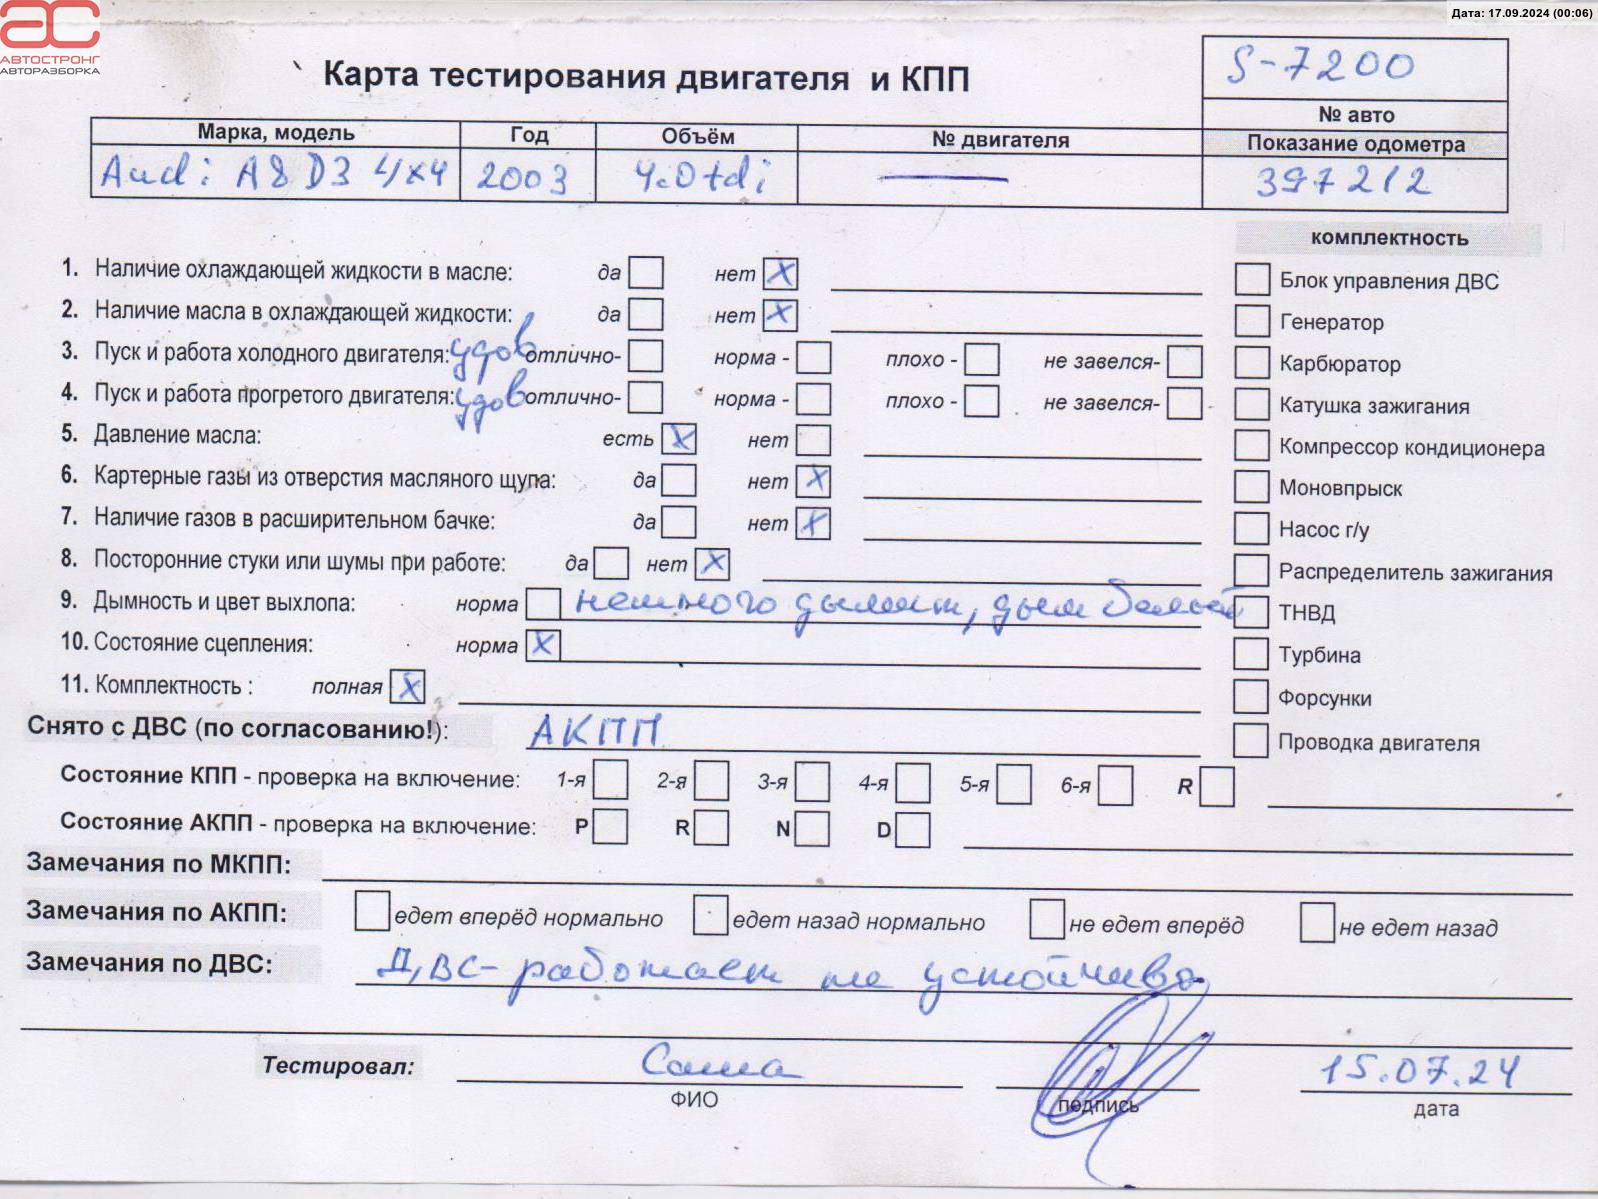 Дата: 17.09.2024 (00:06)
АС
АВТОСТРОНГ
АВТОРАЗБОРКА
Карта тестирования двигателя и КПП
S-7200
№ авто
Марка, модель Год Объём № двигателя Показание одометра
Audi A8 D3 4x4 2003 4.0tdi — 397212
комплектность
1. Наличие охлаждающей жидкости в масле: да нет X
Блок управления ДВС
2. Наличие масла в охлаждающей жидкости: да нет X
Генератор
3. Пуск и работа холодного двигателя: удов отлично- норма - плохо - не завелся-
Карбюратор
4. Пуск и работа прогретого двигателя: удов отлично- норма - плохо - не завелся-
Катушка зажигания
5. Давление масла: есть X нет
Компрессор кондиционера
6. Картерные газы из отверстия масляного щупа: да нет X
Моновпрыск
7. Наличие газов в расширительном бачке: да нет X
Насос г/у
8. Посторонние стуки или шумы при работе: да нет X
Распределитель зажигания
9. Дымность и цвет выхлопа: норма немного дымит, дым белый
ТНВД
10. Состояние сцепления: норма X
Турбина
11. Комплектность : полная X
Форсунки
Снято с ДВС (по согласованию!): АКПП
Проводка двигателя
Состояние КПП - проверка на включение: 1-я 2-я 3-я 4-я 5-я 6-я R
Состояние АКПП - проверка на включение: P R N D
Замечания по МКПП:
Замечания по АКПП: едет вперёд нормально едет назад нормально не едет вперёд не едет назад
Замечания по ДВС: ДВС- работает не устойчиво
Тестировал: Саша 15.07.24
ФИО подпись дата